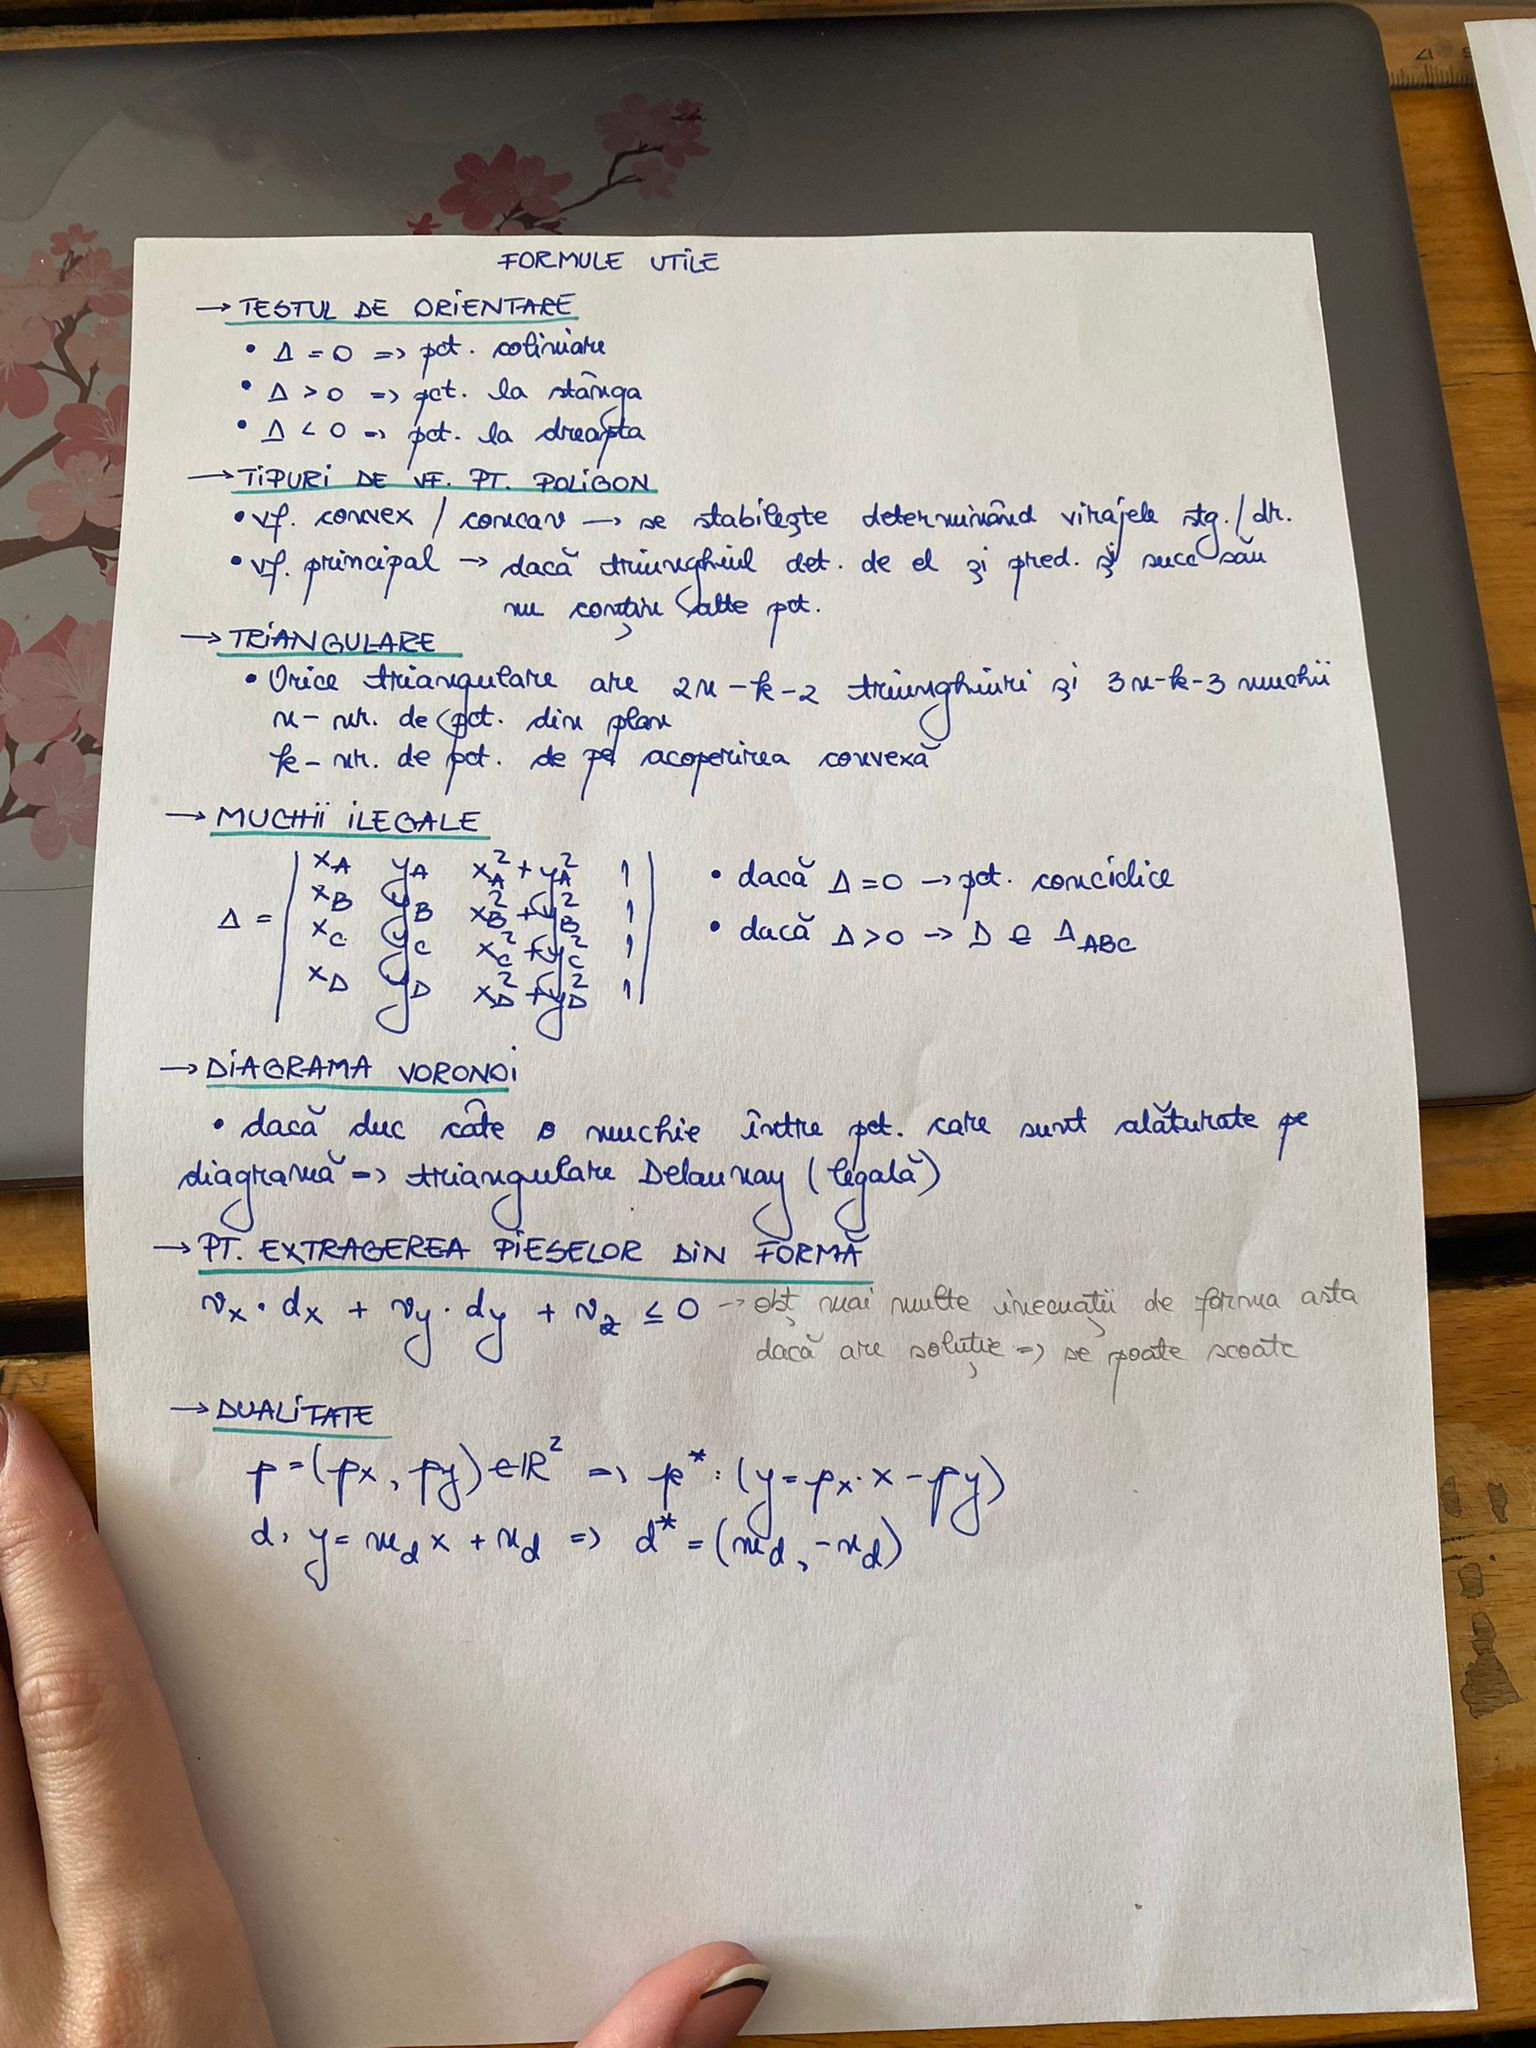 FORMULE UTILE
→ TESTUL DE ORIENTARE
• Δ = 0 => pct. coliniare
• Δ > 0 => pct. la stânga
• Δ < 0 => pct. la dreapta
→ TIPURI DE VF. PT. POLIGON
• vf. convex / concav → se stabilește determinând virajele stg./dr.
• vf. principal → dacă triunghiul det. de el și pred. și succ său
nu conține alte pct.
→ TRIANGULARE
• Orice triangulare are 2n-k-2 triunghiuri și 3n-k-3 muchii
n - nr. de pct. din plan
k - nr. de pct. de pe acoperirea convexă
→ MUCHII ILEGALE
Δ = | x_A y_A x_A² + y_A² 1 |
| x_B y_B x_B² + y_B² 1 |
| x_C y_C x_C² + y_C² 1 |
| x_D y_D x_D² + y_D² 1 |
• dacă Δ = 0 → pct. conciclice
• dacă Δ > 0 → D ∈ Δ_ABC
→ DIAGRAMA VORONOI
• dacă duc câte o muchie între pct. care sunt alăturate pe
diagramă => triangulare Delaunay (legală)
→ PT. EXTRAGEREA PIESELOR DIN FORMĂ
v_x · d_x + v_y · d_y + v_z ≤ 0 → obț mai multe inecuații de forma asta
dacă are soluție => se poate scoate
→ DUALITATE
p = (p_x, p_y) ∈ ℝ² => p* : (y = p_x · x - p_y)
d: y = m_d x + n_d => d* = (m_d, -n_d)